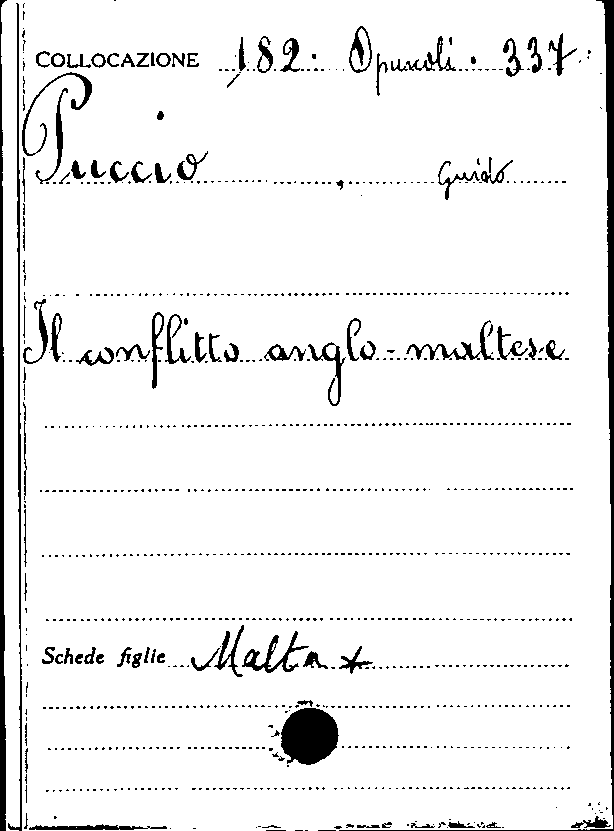 COLLOCAZIONE 182. Opuscoli. 337.
Puccio, Guido
Il conflitto anglo-maltese
Schede figlie Malta *